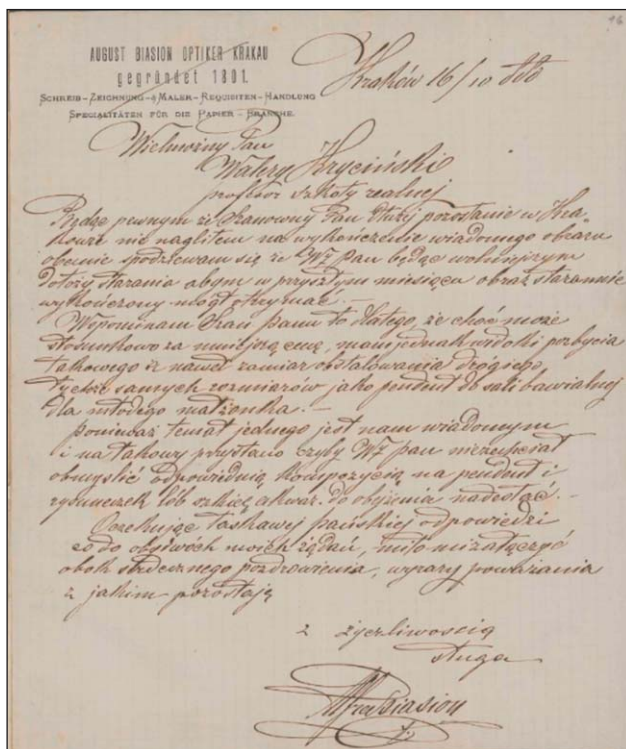 96
AUGUST BIASION OPTIKER KRAKAU
gegründet 1801.
SCHREIB-ZEICHNUNG- & MALER-REQUISITEN-HANDLUNG
SPECIALITÄTEN FÜR DIE PAPIER-BRANCHE.
Kraków 16/10
Wielmożny Pan
Walery Kryciński
profesor szkoły realnej
Będąc pewnym że Szanowny Pan dłużej pozostanie w Kra-
kowie nie nagliłem na wykończenie wiadomego obrazu
obecnie spodziewam się że Wż Pan będąc wolniejszym
dołoży starania abym w przyszłym miesiącu obraz starannie
wykończony mógł otrzymać. —
Wspominam Szan panu to dlatego, że choć może
stosunkowo za mniejszą cenę, mam jednak widoki pozbycia
takowego iż nawet zamiar obstalowania drógiego,
tychże samych rozmiarów jako pendent do sali bawialnej
dla młodego małżonka. —
ponieważ temat jednego jest nam wiadomym
i na takowy przystano czyby Wż pan niezechciał
obmyślić odpowiednią kompozycią na pendent i
rysuneczek lób szkic akwar. do obejrzenia nadesłać. —
Oczekując łaskawej pańskiej odpowiedzi
co do obydwóch moich żądań, miło mi załączyć
obok serdecznego pozdrowienia, wyrazy poważania
z jakim pozostaję
z życzliwością
sługa
Biasion